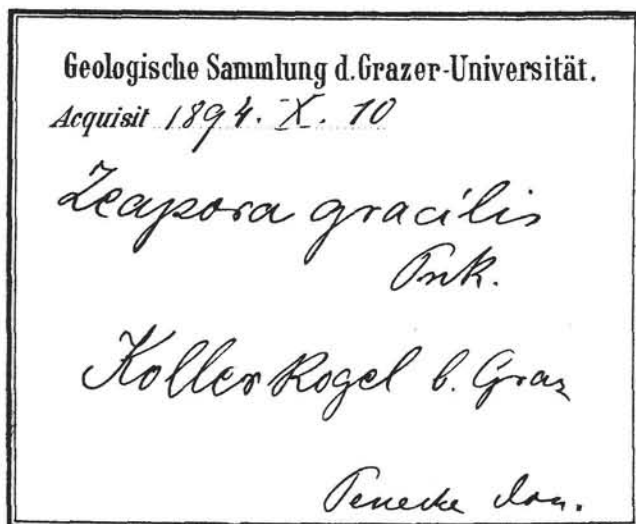 Geologische Sammlung d. Grazer-Universität.
Acquisit 1894. X. 10
Zeapora gracilis
Pnk.
Kollerkogel b. Graz
Penecke don.